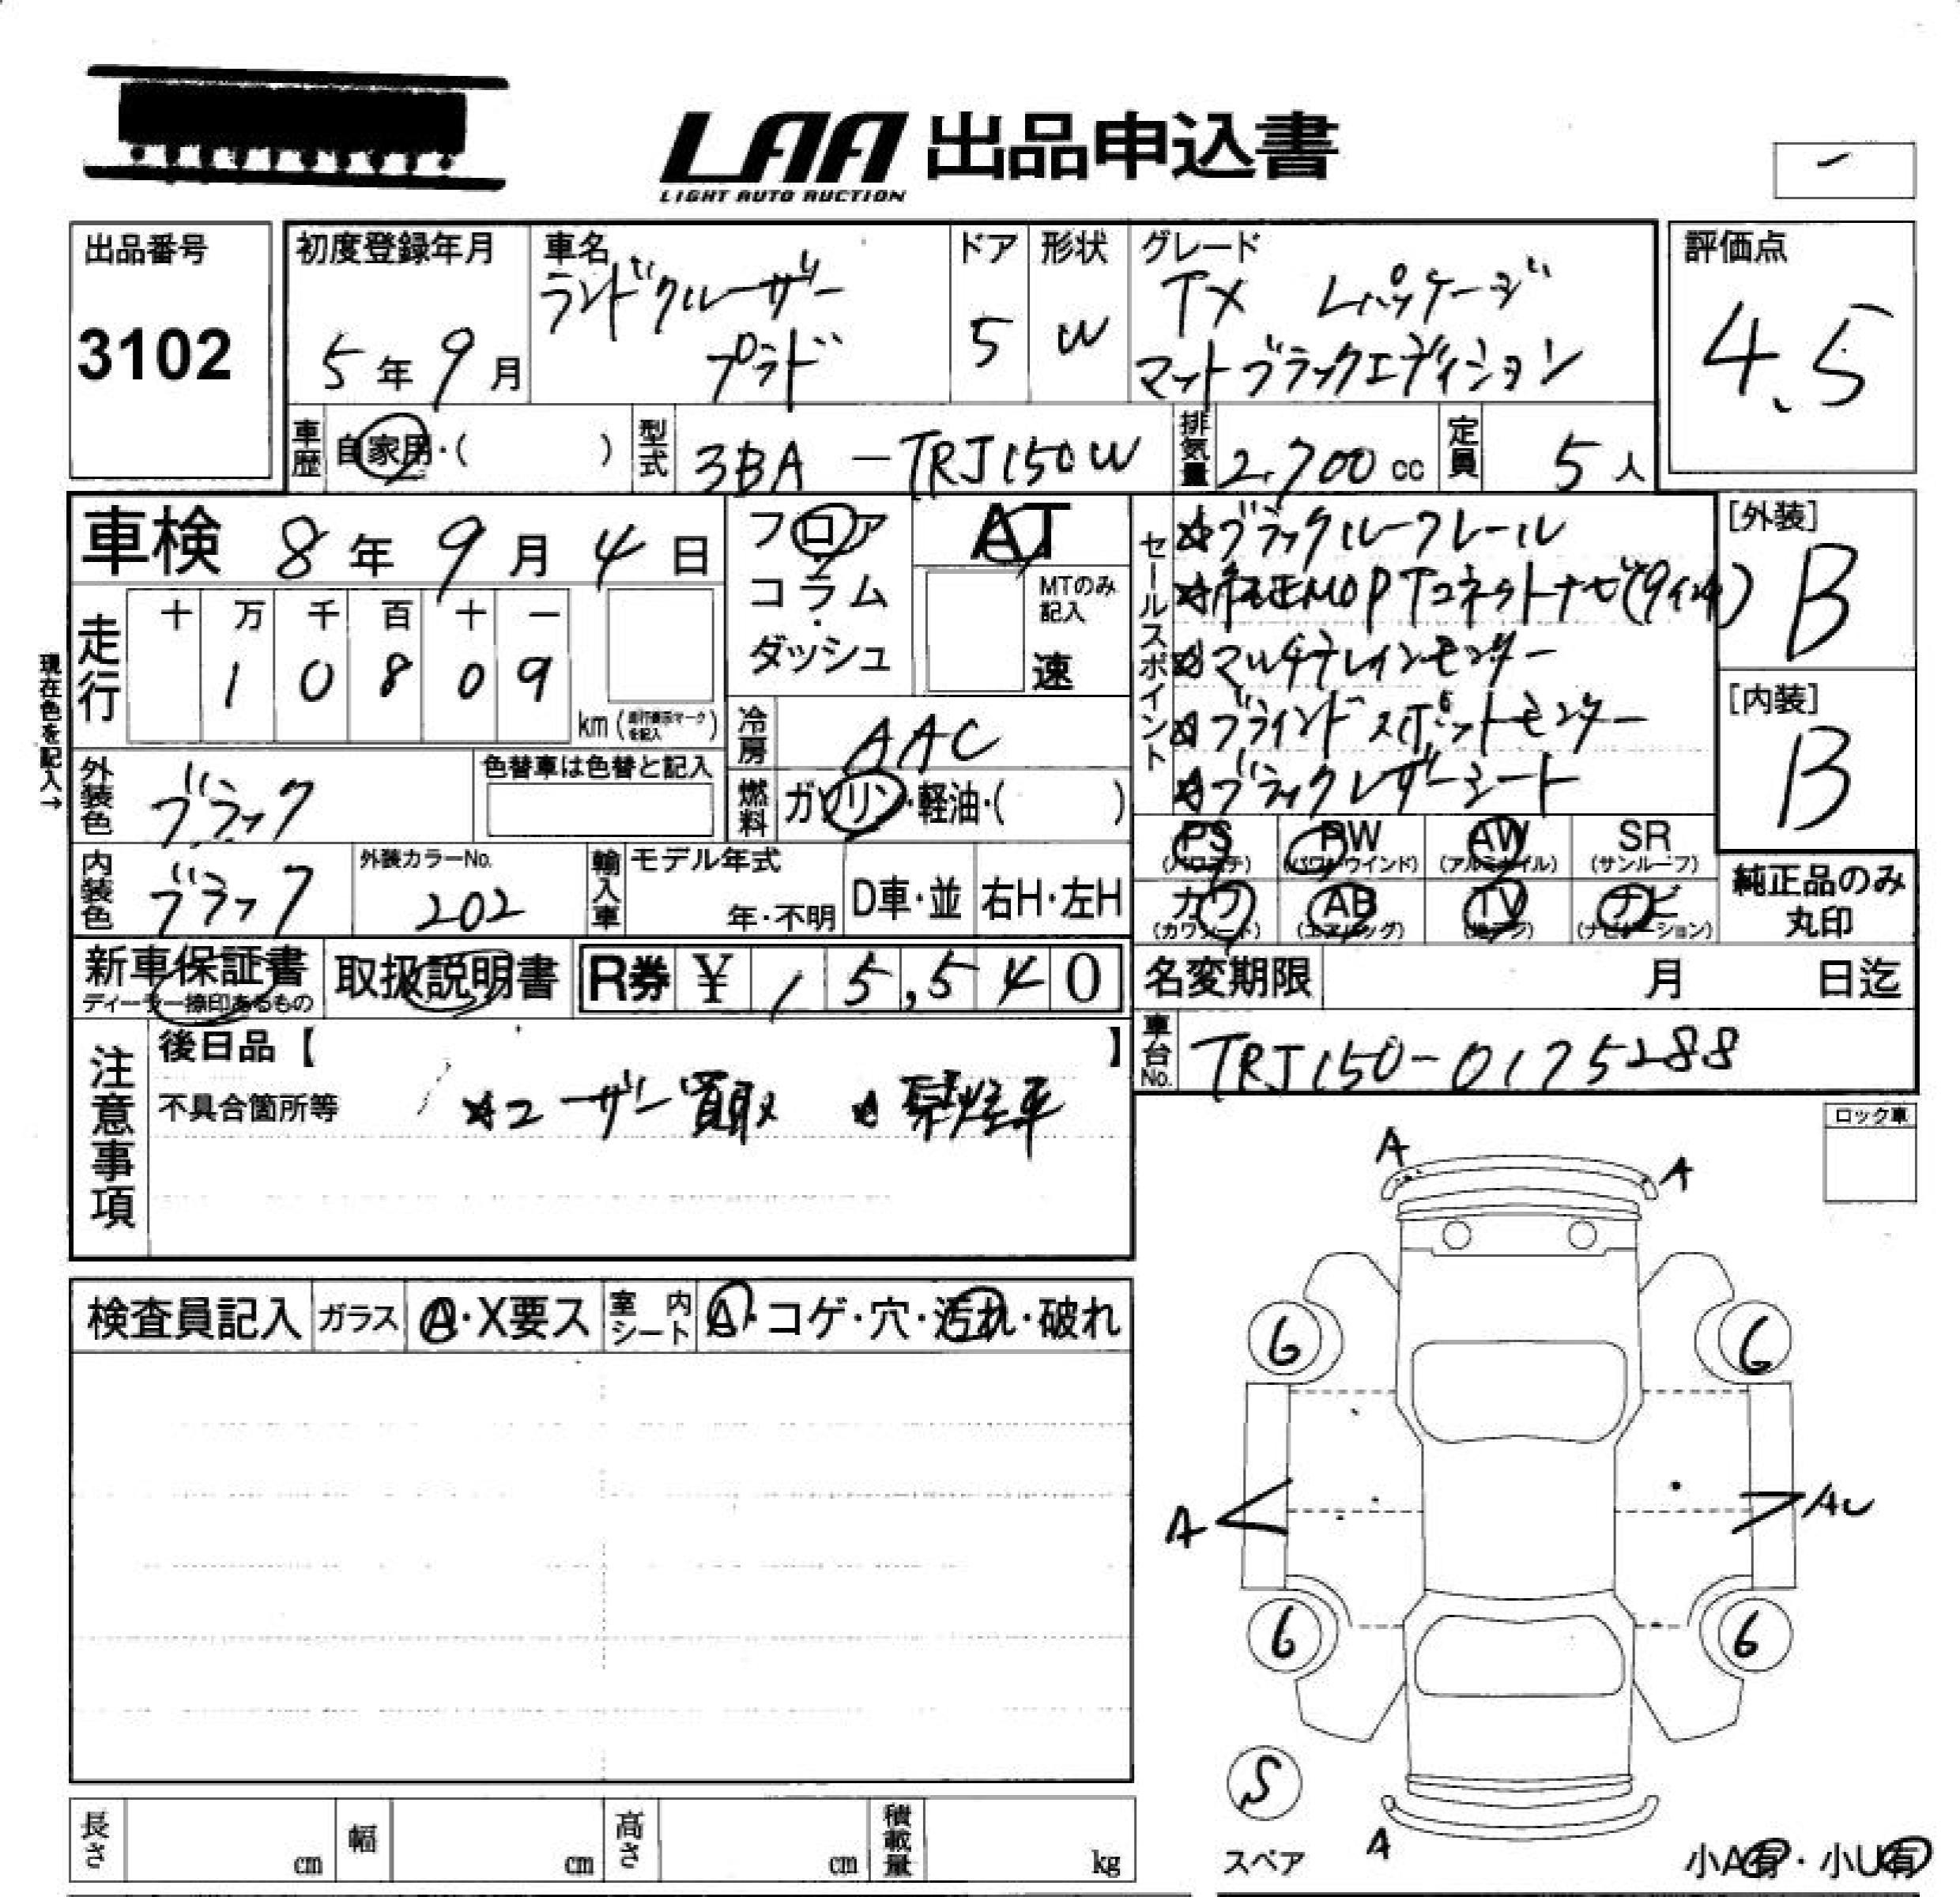 LAA 出品申込書
LIGHT AUTO AUCTION
出品番号
3102
初度登録年月
5年9月
車名
ランドクルーザー
プラド
ドア
5
形状
W
グレード
TX Lパッケージ
マットブラックエディション
評価点
4.5
車歴
自家用・( )
型式
3BA-TRJ150W
排気量
2,700cc
定員
5人
車検 8年9月4日
フロア
・
コラム
・
ダッシュ
AT
MTのみ
記入
速
走行
十 万 千 百 十 一
1 0 8 0 9
km(走行表示マークを記入)
現在色を記入→
セールスポイント
☆ブラックルーフレール
☆純正MOP Tコネクトナビ(9インチ)
☆マルチテレインモニター
☆ブラインドスポットモニター
☆ブラックレザーシート
[外装]
B
[内装]
B
冷房
AAC
外装色
ブラック
色替車は色替と記入
燃料
ガソリン・軽油・( )
内装色
ブラック
外装カラーNo.
202
輸入車
モデル年式
年・不明
D車・並
右H・左H
PS
(パワステ)
PW
(パワーウインド)
AW
(アルミホイル)
SR
(サンルーフ)
カワ
(カワシート)
AB
(エアバッグ)
TV
(地デジ)
ナビ
(ナビゲーション)
純正品のみ
丸印
新車保証書
ディーラー捺印あるもの
取扱説明書
R券 ¥ 15,540
名変期限 月 日迄
車台No.
TRJ150-0175288
注意事項
後日品【 】
不具合箇所等 ☆ユーザー買取 ☆禁煙車
ロック車
A
A
検査員記入
ガラス
A・X要ス
室内
シート
A・コゲ・穴・汚れ・破れ
6
6
A
AU
6
6
S
スペア
A
小A有・小U有
長さ cm
幅 cm
高さ cm
積載量 kg